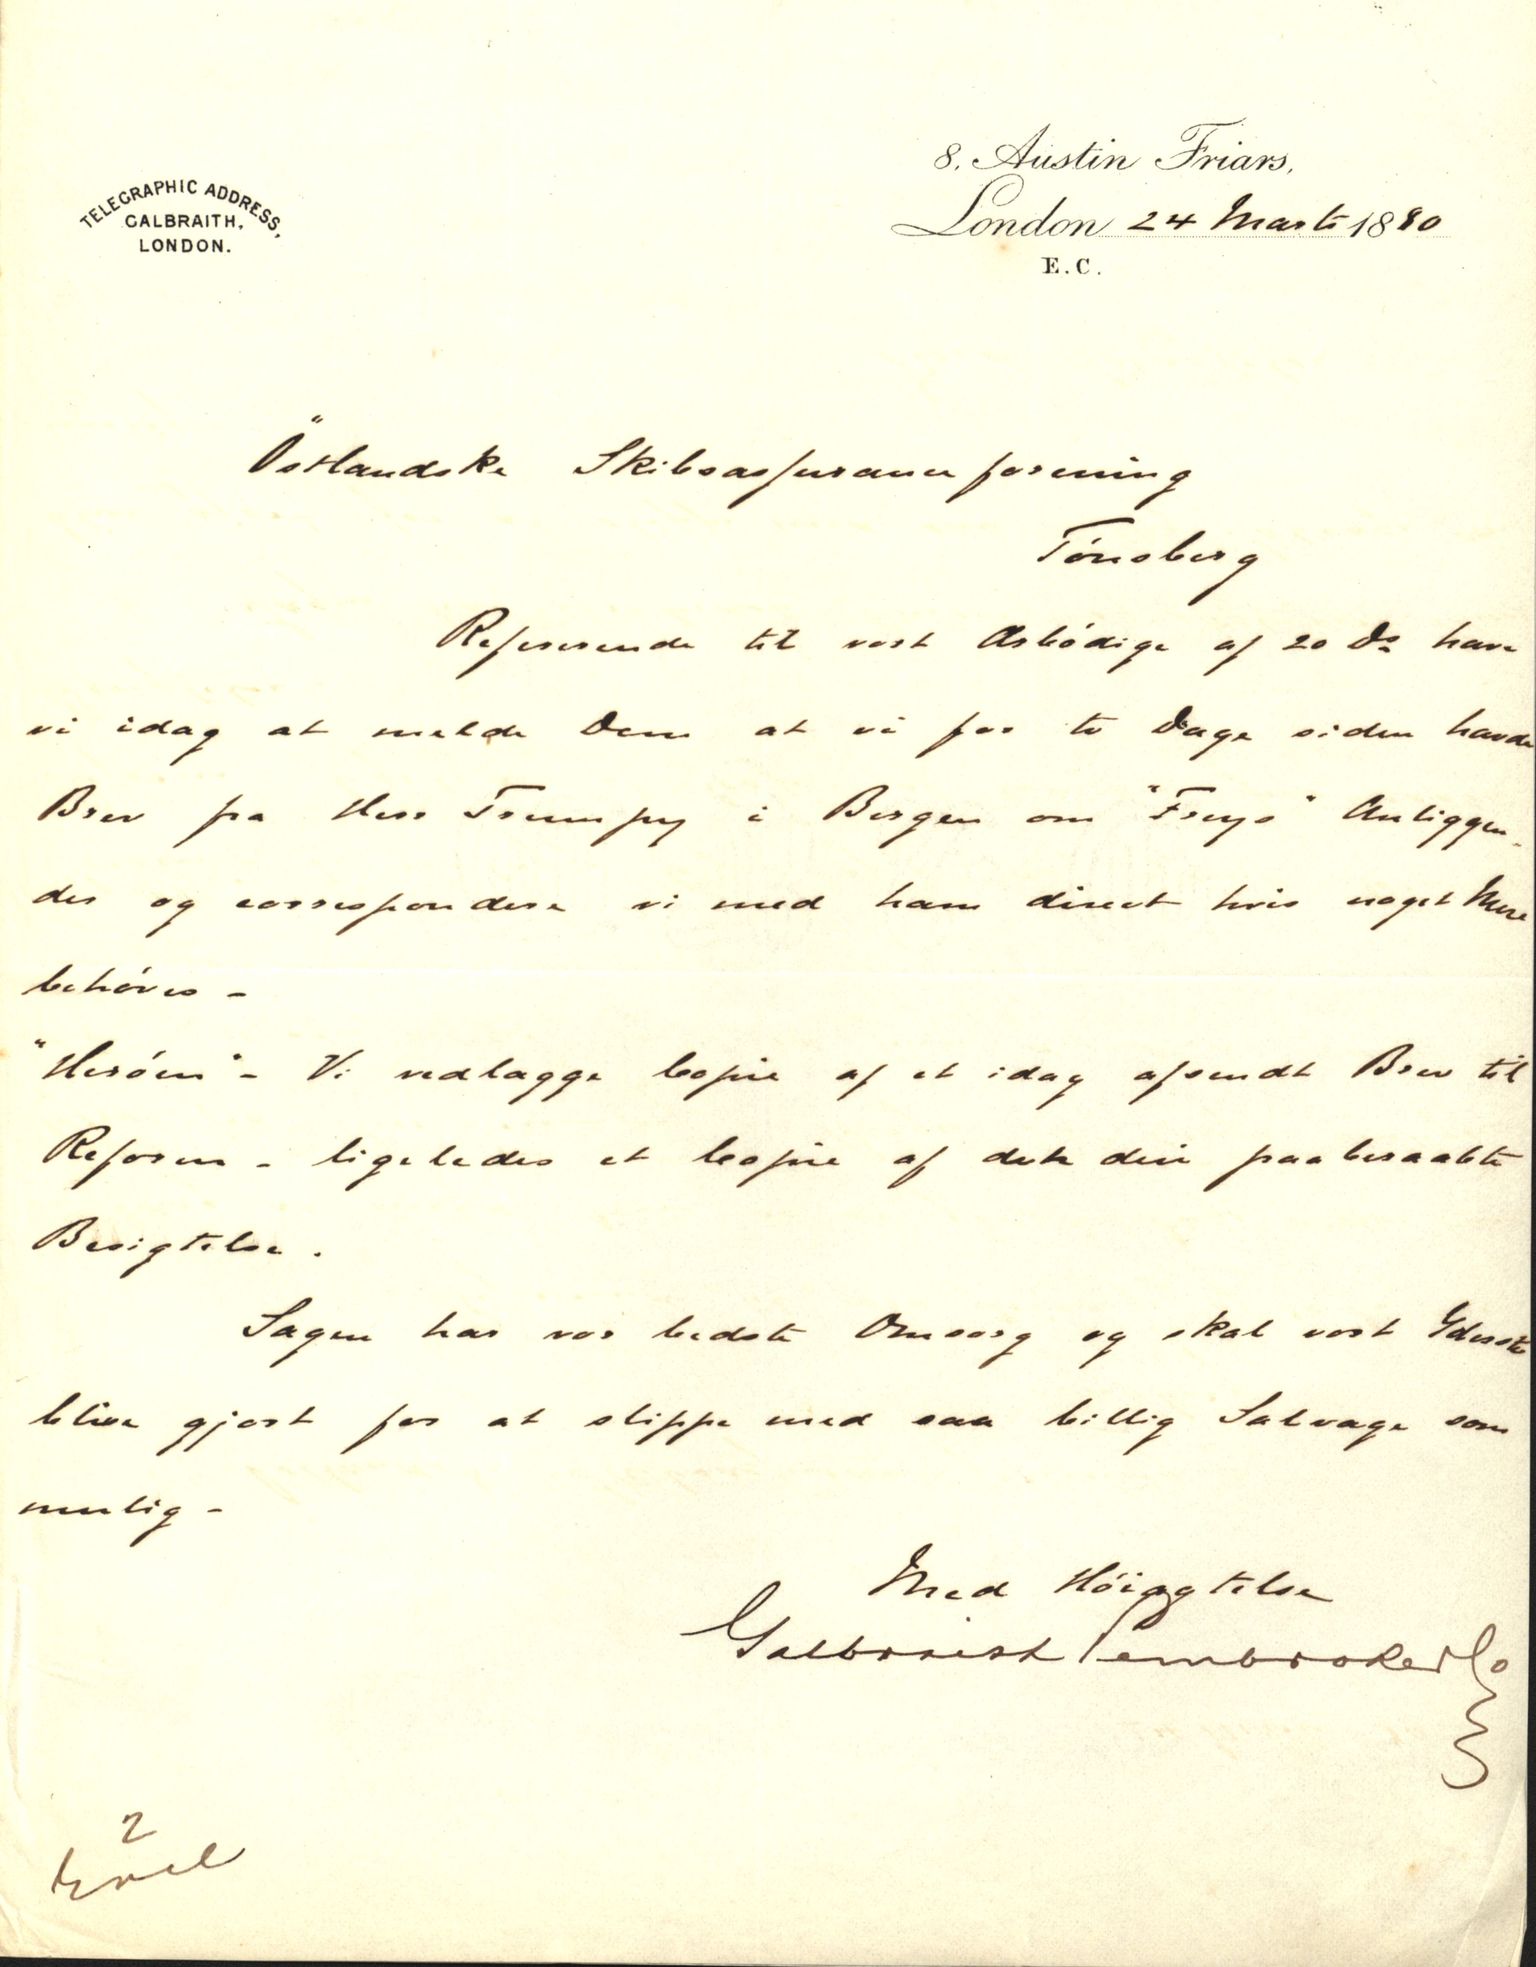 TELEGRAPHIC ADDRESS,
GALBRAITH,
LONDON.
8, Austin Friars,
London 24 Marts 1890
E.C.
Östlandske Skibsassuranceforening
Tónsberg
Refererende til vort Ærbódige af 20 Ds have
vi idag at melde Dem at vi for to Dage siden havde
Brev fra Herr Trumpy i Bergen om "Freys" Anliggen-
der og correspondere vi med ham direct hvis noget Mere
behóves -
"Heróen" - Vi vedlægge Copie af et idag afsendt Brev til
Reform - ligeledes et Copie af dette deri paaberaabte
Besigtelse.
Sagen har vor bedste Omsorg og skal vort Yderste
blive gjort for at slippe med saa billig Salvage som
mulig -
Med Hóiagtelse
Galbraith Pembroke & Co
2
Encl